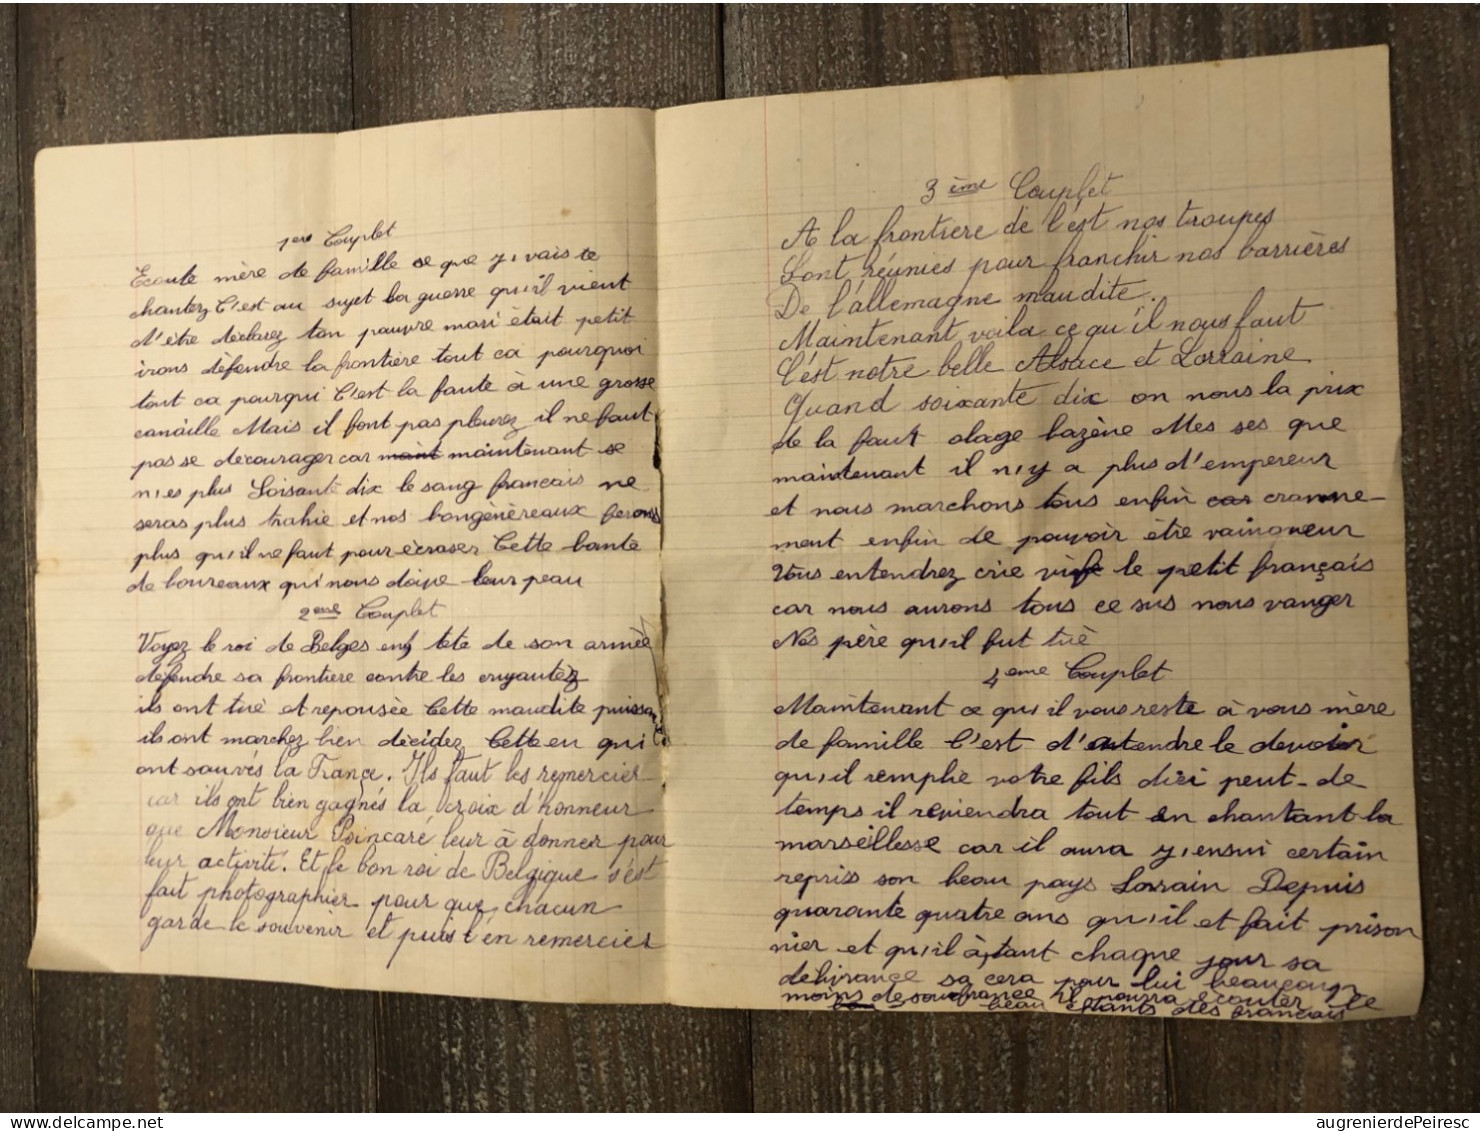 1ere Couplet
Ecoute mère de famille ce que y, vais te
chantez C'est au sujet la guerre qu'il vient
d'être déclarez ton pauvre mari était petit
irons défendre la frontière tout ca pourquoi
tout ca pourqui C'est la faute à une grosse
canaille Mais il font pas pleurez il ne faut
pas se décourager car maint maintenant se
n, es plus Soisante dix le sang francais ne
seras plus trahie et nos bongénèreaux ferons
plus qu,il ne faut pour écraser Cette bante
de boureaux qui nous doive leur peau
2eme Couplet
Voyez le roi de Belges en tete de son armée
défendre sa frontière contre les
ils ont tué et repousée Cette maudite
ils ont marchez bien décidez Cette en qui
ont sauvés la France. Ils faut les remercier
car ils ont bien gagnés la croix d'honneur
que Monsieur Poincaré leur à donner pour
leur activité. Et le bon roi de Belgique s'est
fait photographier pour que chacun
garde le souvenir et puis l'en remercier
3ème Couplet
A la frontiere de l'est nos troupes
Sont réunies pour franchir nos barrières
De l'allemagne maudite.
Maintenant voila ce qu'il nous faut
C'est notre belle Alsace et Lorraine
Quand soixante dix on nous la prix
de la faut olage bazène Mes ses que
maintenant il n,y a plus d'empereur
et nous marchons tous enfin car cranne-
ment enfin de pouvoir être vainqueur
Vous entendrez crie vif le petit français
car nous aurons tous ce sus nous vanger
Nos père qu'il fut tué
4eme Couplet
Maintenant ce qu,il vous reste à vous mère
de famille C'est d'entendre le devoir
qu,il remphe votre fils dici peut-de
temps il reviendra tout en chantant la
marseillesse car il aura y,ensui certain
repris son beau pays Lorrain Depuis
quarante quatre ans qu'il et fait prison
nier et qu,il à, tant chaque jour sa
délivrance sa cera pour lui beaucoup
moins de soufrance il pourra ecouter le
beau chants des francais
augrenierdePeiresc